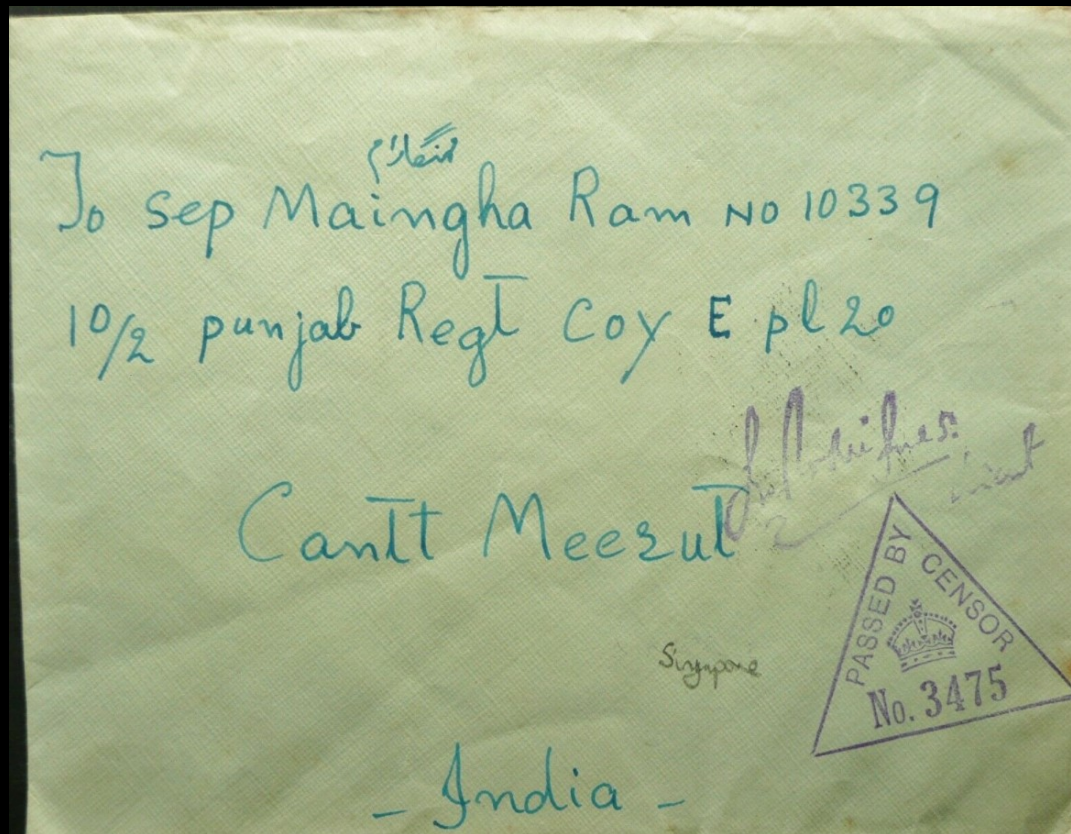 منگھارام
To Sep Maingha Ram NO 10339
10/2 punjab Regt Coy E pl 20
Cantt Meerut
PASSED BY CENSOR
No. 3475
Singapore
- India -